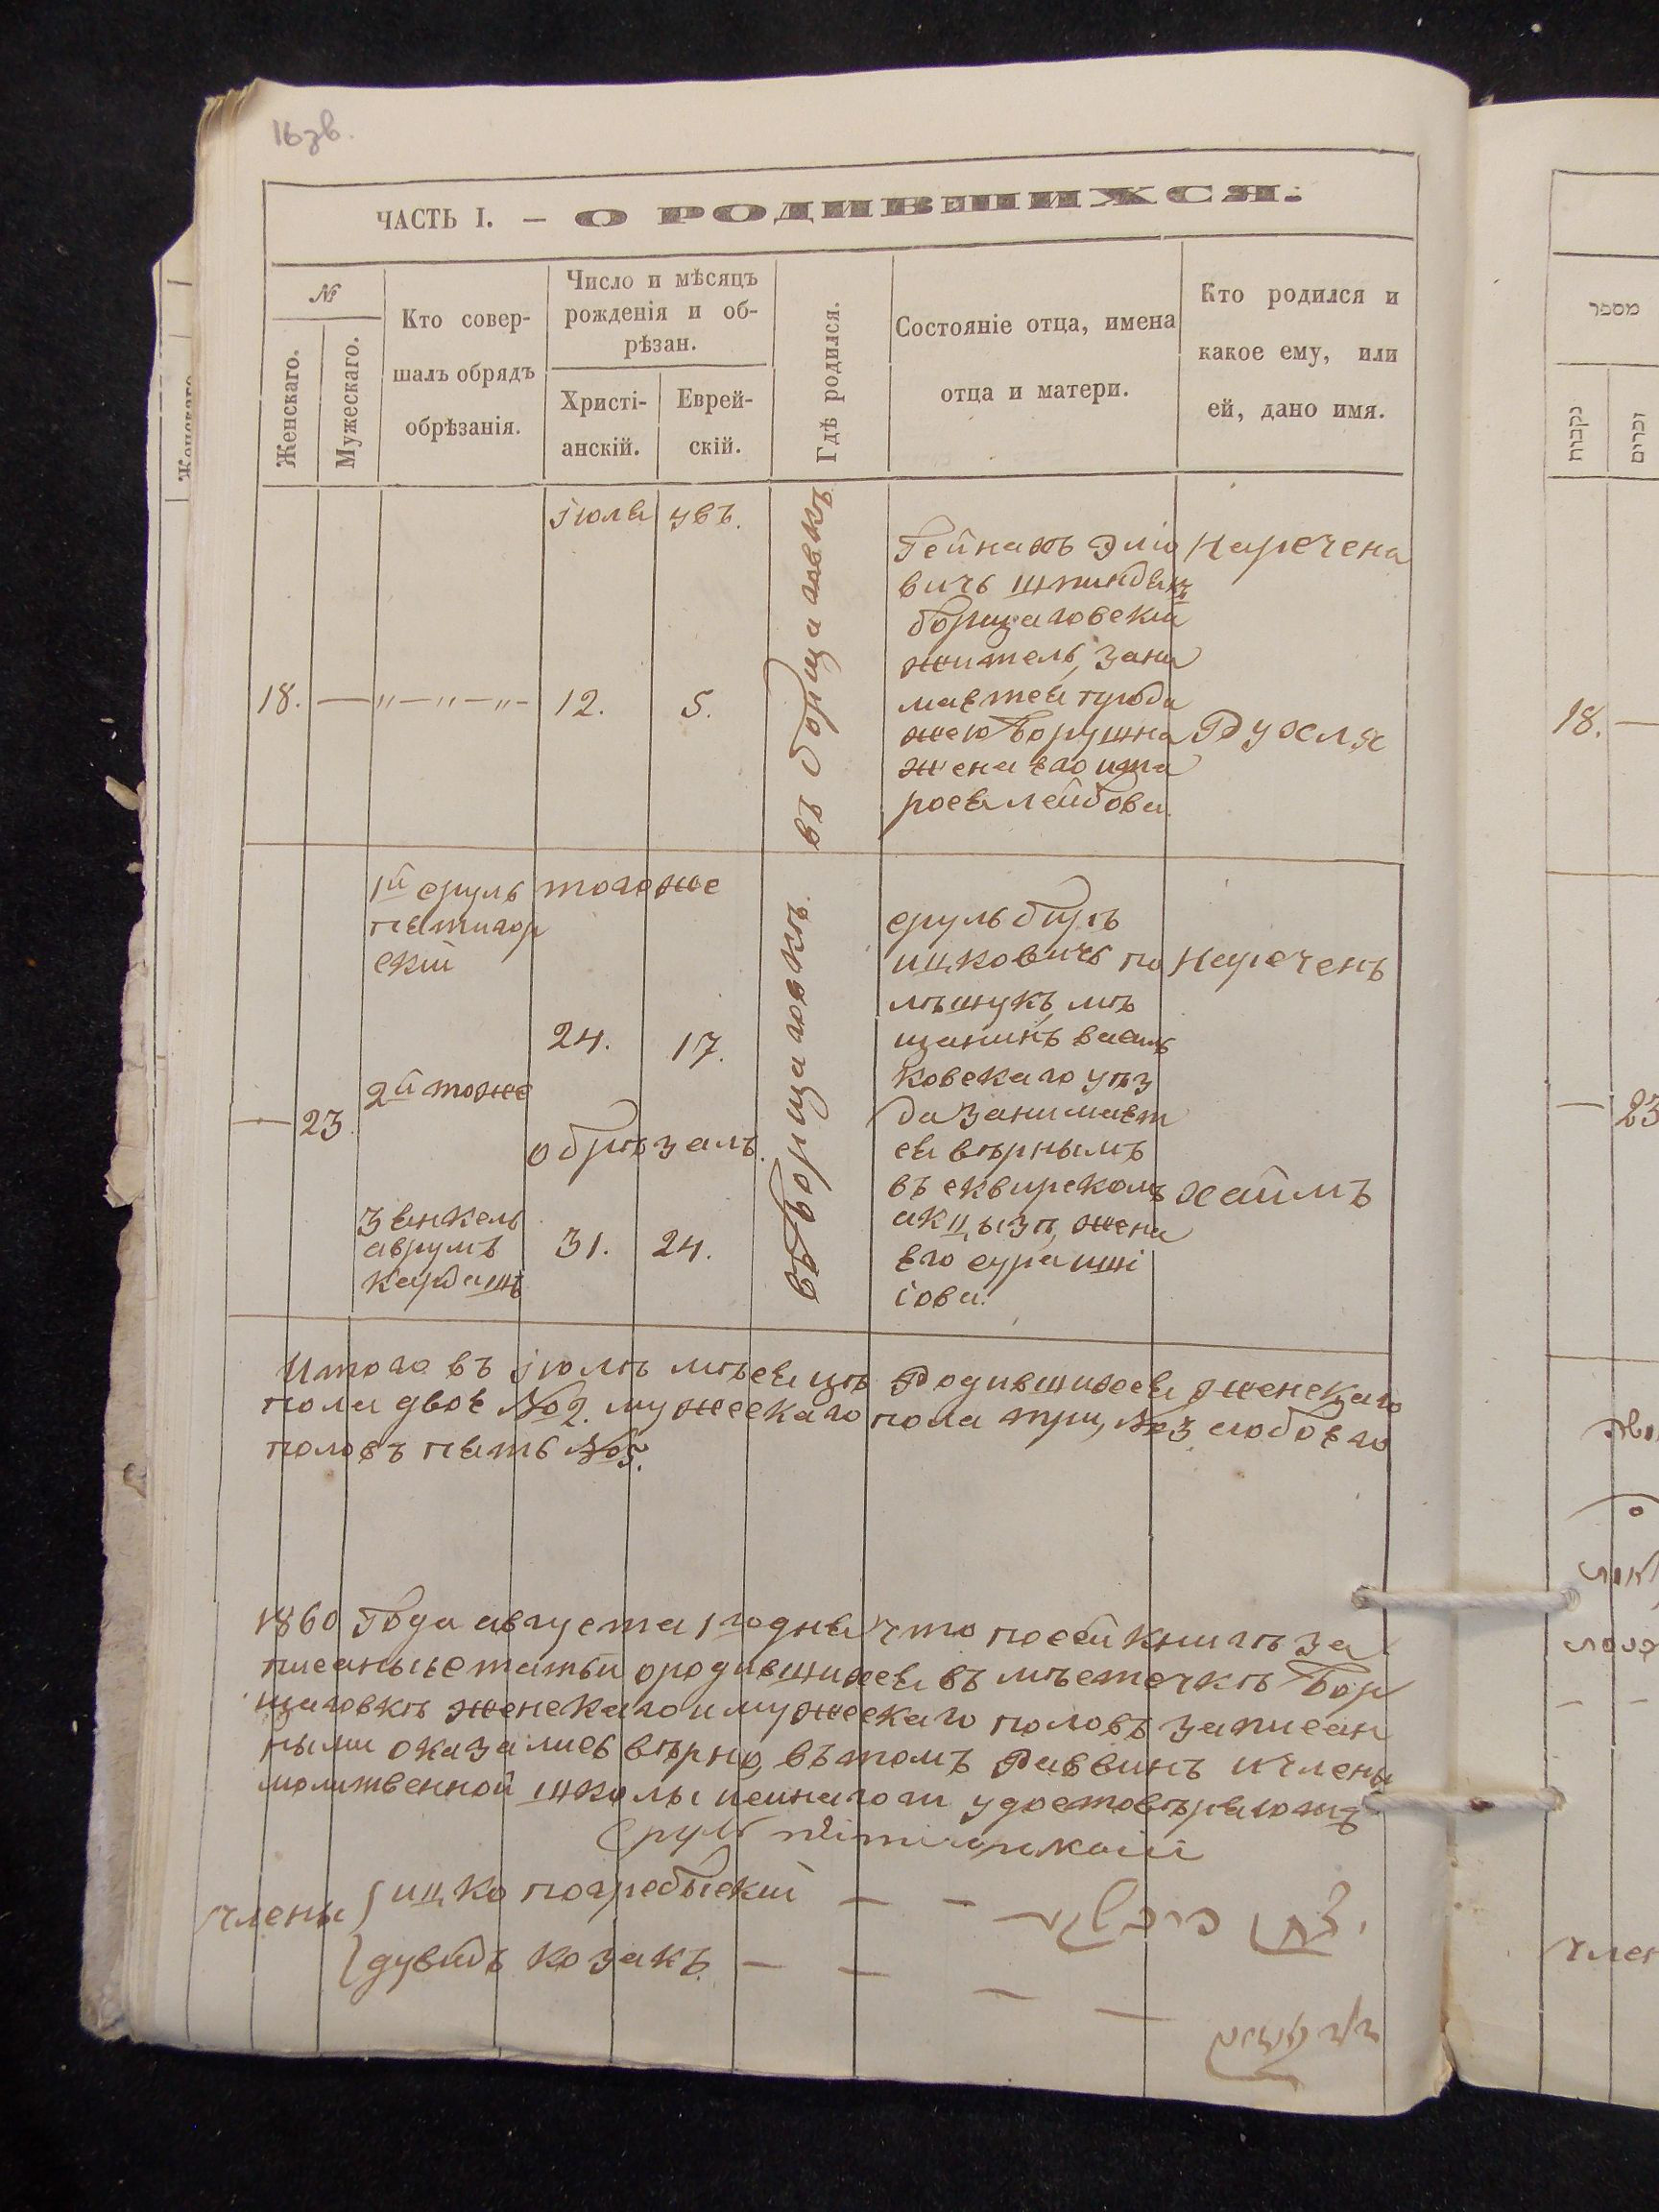 16зв.
ЧАСТЬ I. – О РОДИВШИХСЯ.
№
Женскаго.
Мужескаго.
Кто совер-
шалъ обрядъ
обрѣзанія.
Число и мѣсяцъ
рожденія и об-
рѣзан.
Христі-
анскій.
Еврей-
скій.
Гдѣ родился.
Состояніе отца, имена
отца и матери.
Кто родился и
какое ему, или
ей, дано имя.
Іюля
увъ.
18. — „ — „ — „ —
12.
5.
въ борщаговкѣ
Гейнахъ Эліо
вичъ
борщаговскій
житель, зани
маетсяи
жею
жена его
рося лейбова.
Наречена
Рухля
— 23.
1й сруль
пятигор
скій
2й тоже
зянкель
аврумъ
кардашъ
тогоже
24.
17.
обрѣзалъ.
31.
24.
въ борщаговкѣ.
срульберъ
ицковичъ по
лѣщукъ, мѣ
щанинъ василь
ковскаго уѣз
да занимает
ся вѣрнымъ
въ сквирскомъ
акцызѣ, жена
его сура
іова.
Нареченъ
хаймъ
Итого въ Іюлѣ мѣсяцѣ Родившихся женскаго
пола двое №2. мужескаго пола три, №3 а обоего
половъ пять №5.
1860 Года августа 1го дня что по сей книгѣ за
писаныя статьи о родившихся въ мѣстечкѣ Бор
щаговкѣ женскаго и мужескаго половъ записан
ными оказались вѣрно, въ томъ Раввинъ и члены
молитвенной школы удостовѣряютъ
Сруль
члены { ицко погребыскій — —
{ дувидъ козакъ. — — — —
מספר
נקבות
זכרים
18. —
— 23